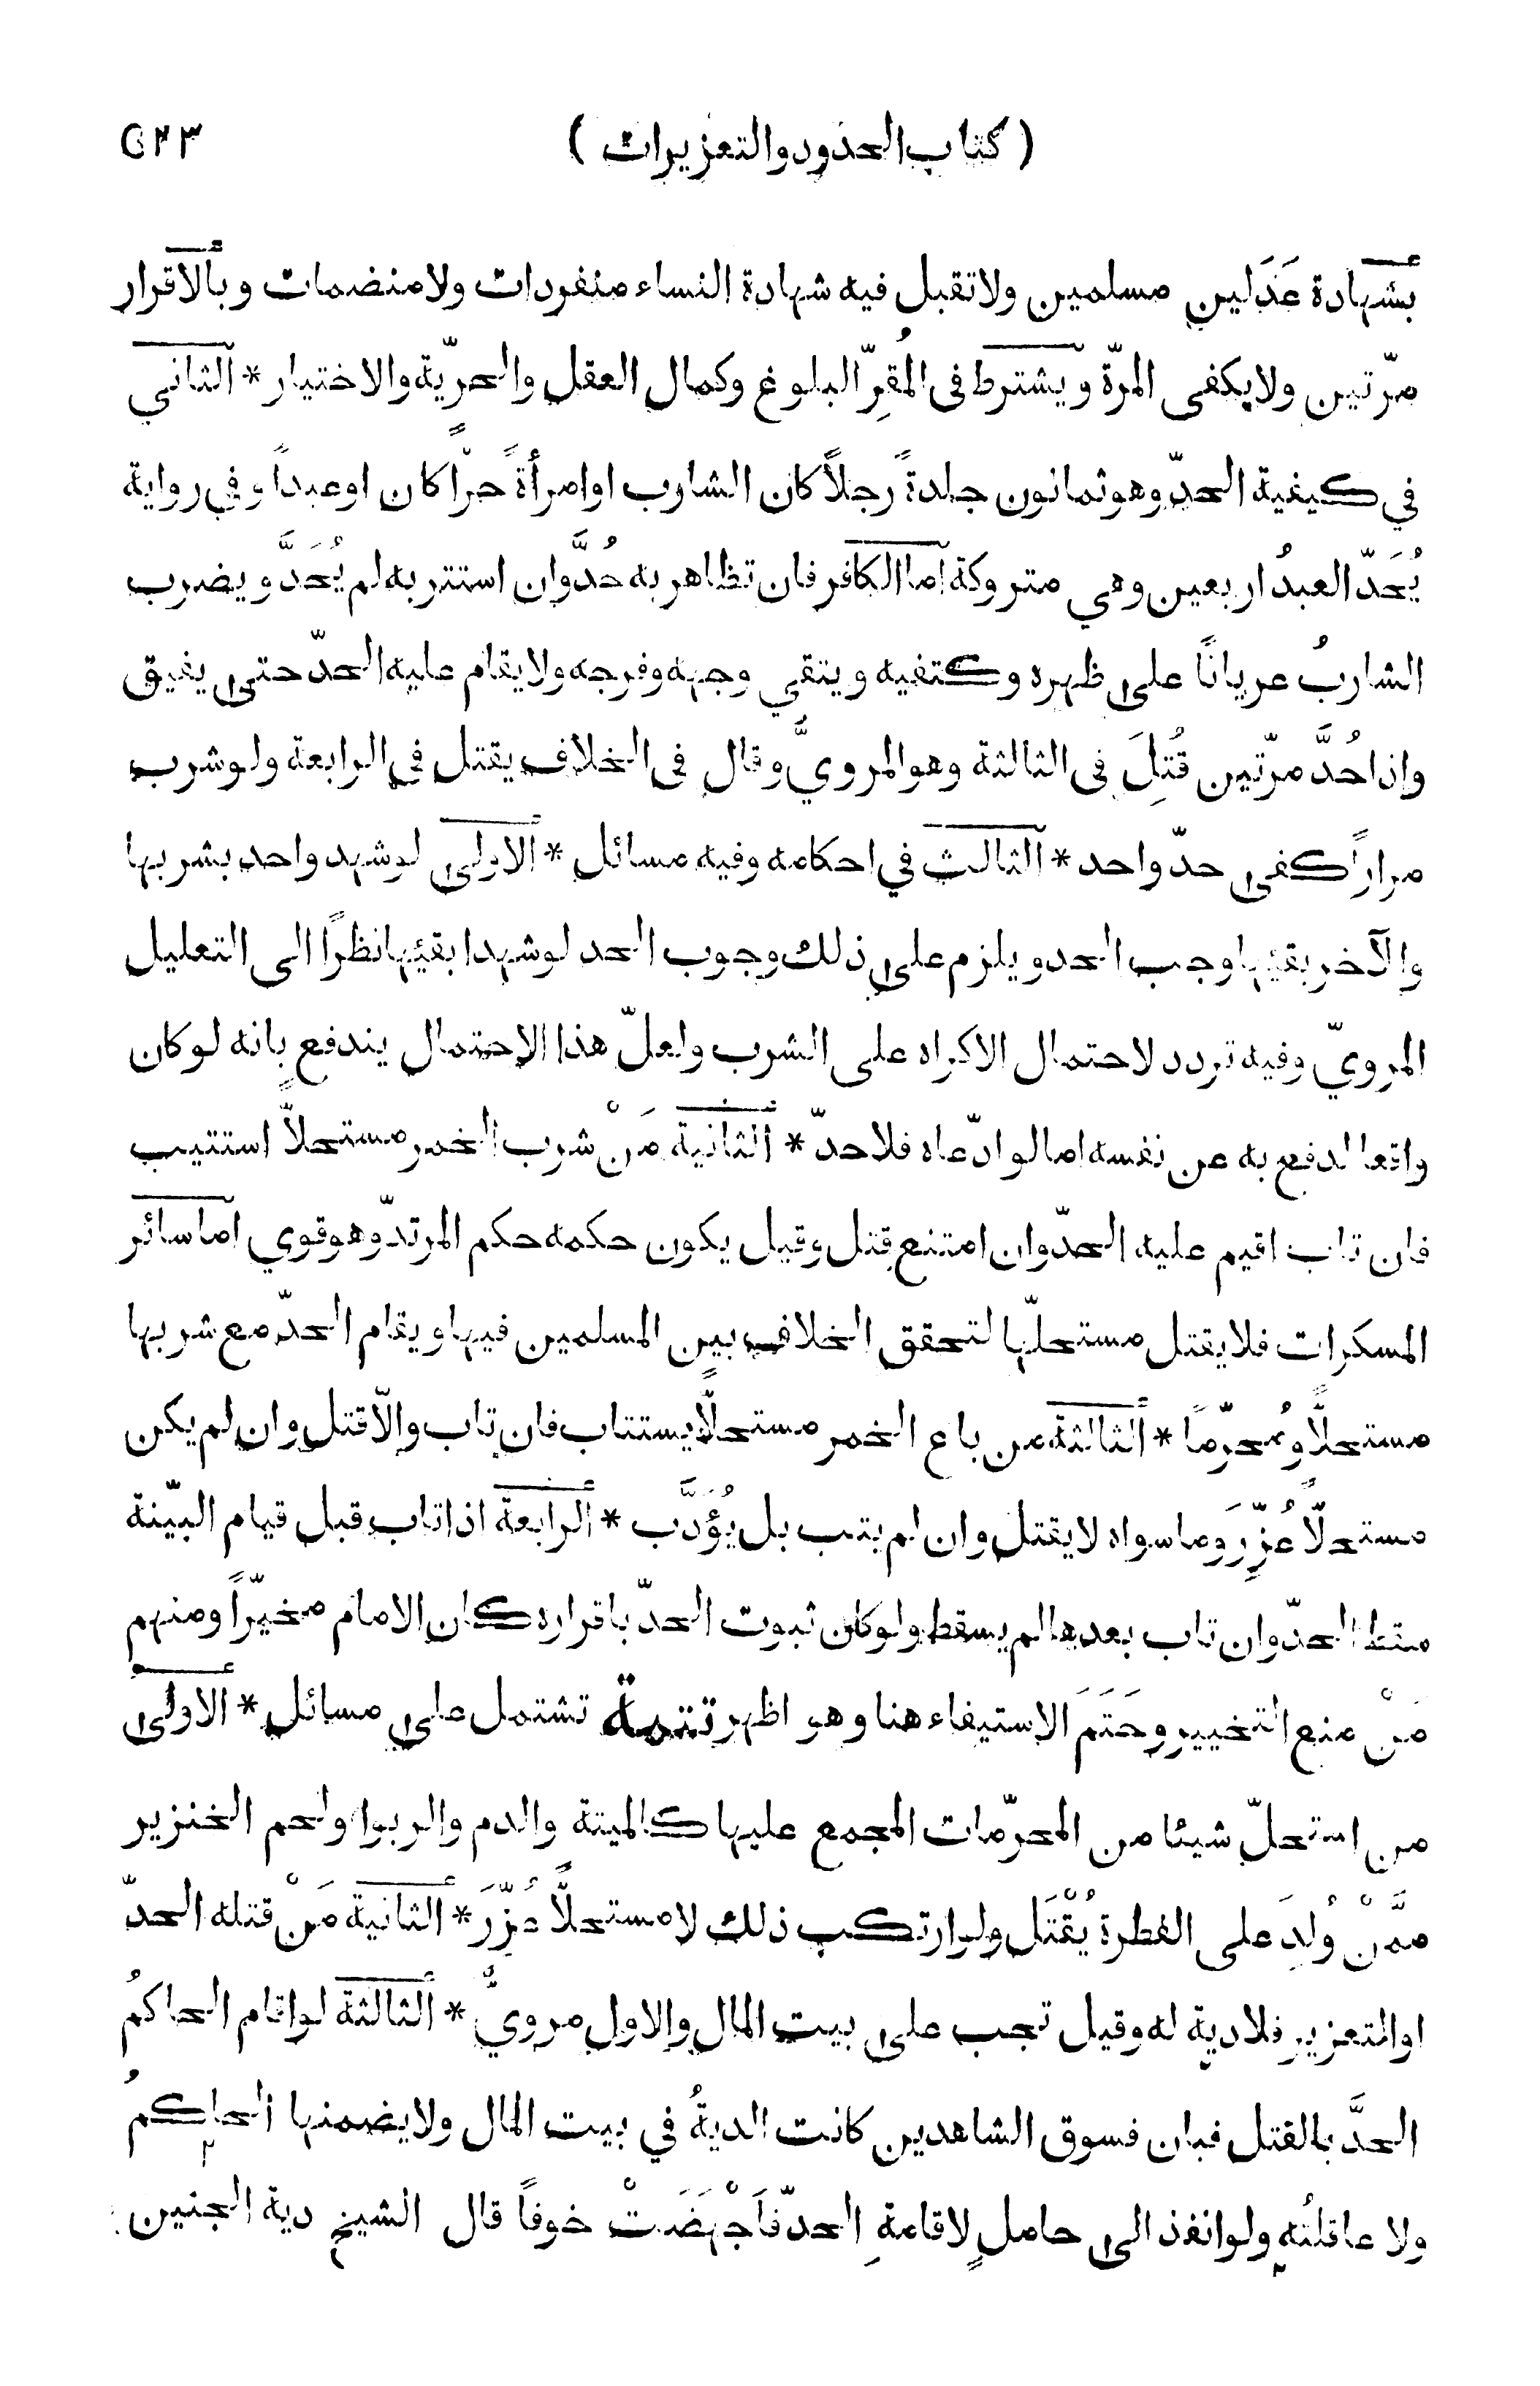 ( كتاب الحدود والتعزيرات ) ٥٢٣
بشهادة عَدَلين مسلمين ولا تقبل فيه شهادة النساء منفردات ولا منضمات وبالاقرار
مرّتين ولا يكفى المرّة ويشترط فى المُقِرّ البلوغ وكمال العقل والحرّيّة والاختيار * الثاني
في كيفية الحدّ وهو ثمانون جلدةً رجلاً كان الشارب او امرأةً حرّاً كان او عبداً وفي رواية
يُحَدّ العبدُ اربعين وهي متروكة اما الكافر فان تظاهر به حُدَّ وان استتر به لم يُحَدَّ ويضرب
الشاربُ عرياناً على ظهره وكتفيه ويتقي وجهه وفرجه ولا يقام عليه الحدّ حتى يفيق
واذا حُدَّ مرّتين قُتِلَ فى الثالثة وهو المرويّ وقال فى الخلاف يقتل في الرابعة ولو شرب
مراراً كفى حدّ واحد * الثالث في احكامه وفيه مسائل * الاولى لو شهد واحد بشربها
والآخر بقيئها وجب الحد ويلزم على ذلك وجوب الحد لو شهدا بقيئها نظراً الى التعليل
المرويّ وفيه تردد لاحتمال الاكراه على الشرب ولعلّ هذا الاحتمال يندفع بانه لو كان
واقعا لدفع به عن نفسه اما لو ادّعاه فلا حدّ * الثانية مَنْ شرب الخمر مستحلاًّ استتيب
فان تاب اقيم عليه الحدّ وان امتنع قتل وقيل يكون حكمه حكم المرتدّ وهو قوي اما سائر
المسكرات فلا يقتل مستحلّها لتحقق الخلاف بين المسلمين فيها ويقام الحدّ مع شربها
مستحلاًّ ومُحرّماً * الثالثة من باع الخمر مستحلاًّ يستتاب فان تاب والاّ قتل وان لم يكن
مستحلاًّ عُزِّرَ وما سواه لا يقتل وان لم يتب بل يُؤَدَّب * الرابعة اذا تاب قبل قيام البيّنة
سقط الحدّ وان تاب بعدها لم يسقط ولو كان ثبوت الحدّ باقراره كان الامام مخيّراً ومنهم
مَنْ منع التخيير وحَتَمَ الاستيفاء هنا وهو اظهر تتمة تشتمل على مسائل * الاولى
من استحلّ شيئا من المحرّمات المجمع عليها كالميتة والدم والربوا ولحم الخنزير
ممَّنْ وُلِدَ على الفطرة يُقْتَل ولو ارتكب ذلك لا مستحلاًّ عُزِّرَ * الثانية مَنْ قتله الحدّ
او التعزير فلا دية له وقيل تجب على بيت المال والاول مرويٌّ * الثالثة لو اقام الحاكمُ
الحدَّ بالقتل فبان فسوق الشاهدين كانت الديةُ في بيت المال ولا يضمنها الحاكمُ
ولا عاقلتُه ولو انفذ الى حاملٍ لاقامةِ الحدّ فاَجْهَضَتْ خوفاً قال الشيخ دية الجنين